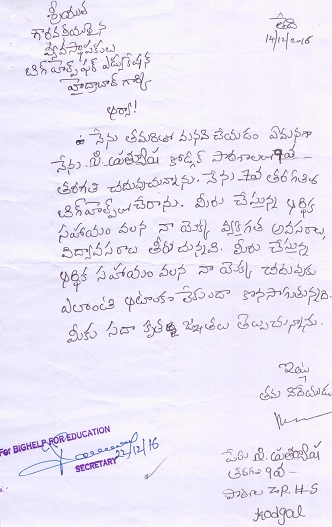 శ్రీయుత
తేది
14/12/2016
గౌరవనీయులైన
వ్యవస్థాపకులు
బిగ్ హెల్ప్ ఫర్ ఎడ్యుకేషన్
హైద్రాబాద్ గార్కి
ఆర్యా!
నేను తమరితో మనవి చేయడం ఏమనగా
నేను కోడ్గల్ పాఠశాలలో 9వ
తరగతి చదువుచున్నాను. నేను 7వ తరగతిలో
బిగ్ హెల్ప్ లో చేరాను. మీరు చేస్తున్న ఆర్థిక
సహాయం వలన నా యొక్క వ్యక్తిగత అవసరాలు
విద్యావసరాలు తీరుచున్నవి. మీరు చేస్తున్న
ఆర్థిక సహాయం వలన నా యొక్క చదువుకు
ఎలాంటి ఆటంకం లేకుండా కొనసాగుతున్నది.
మీకు సదా కృతజ్ఞతలు తెల్పుచున్నాను.
ఇట్లు
తమ విధేయుడు
For BIGHELP FOR EDUCATION
22/12/16
SECRETARY
పేరు
తరగతి 9వ
పాఠశాల Z.P.H.S
Kodgal